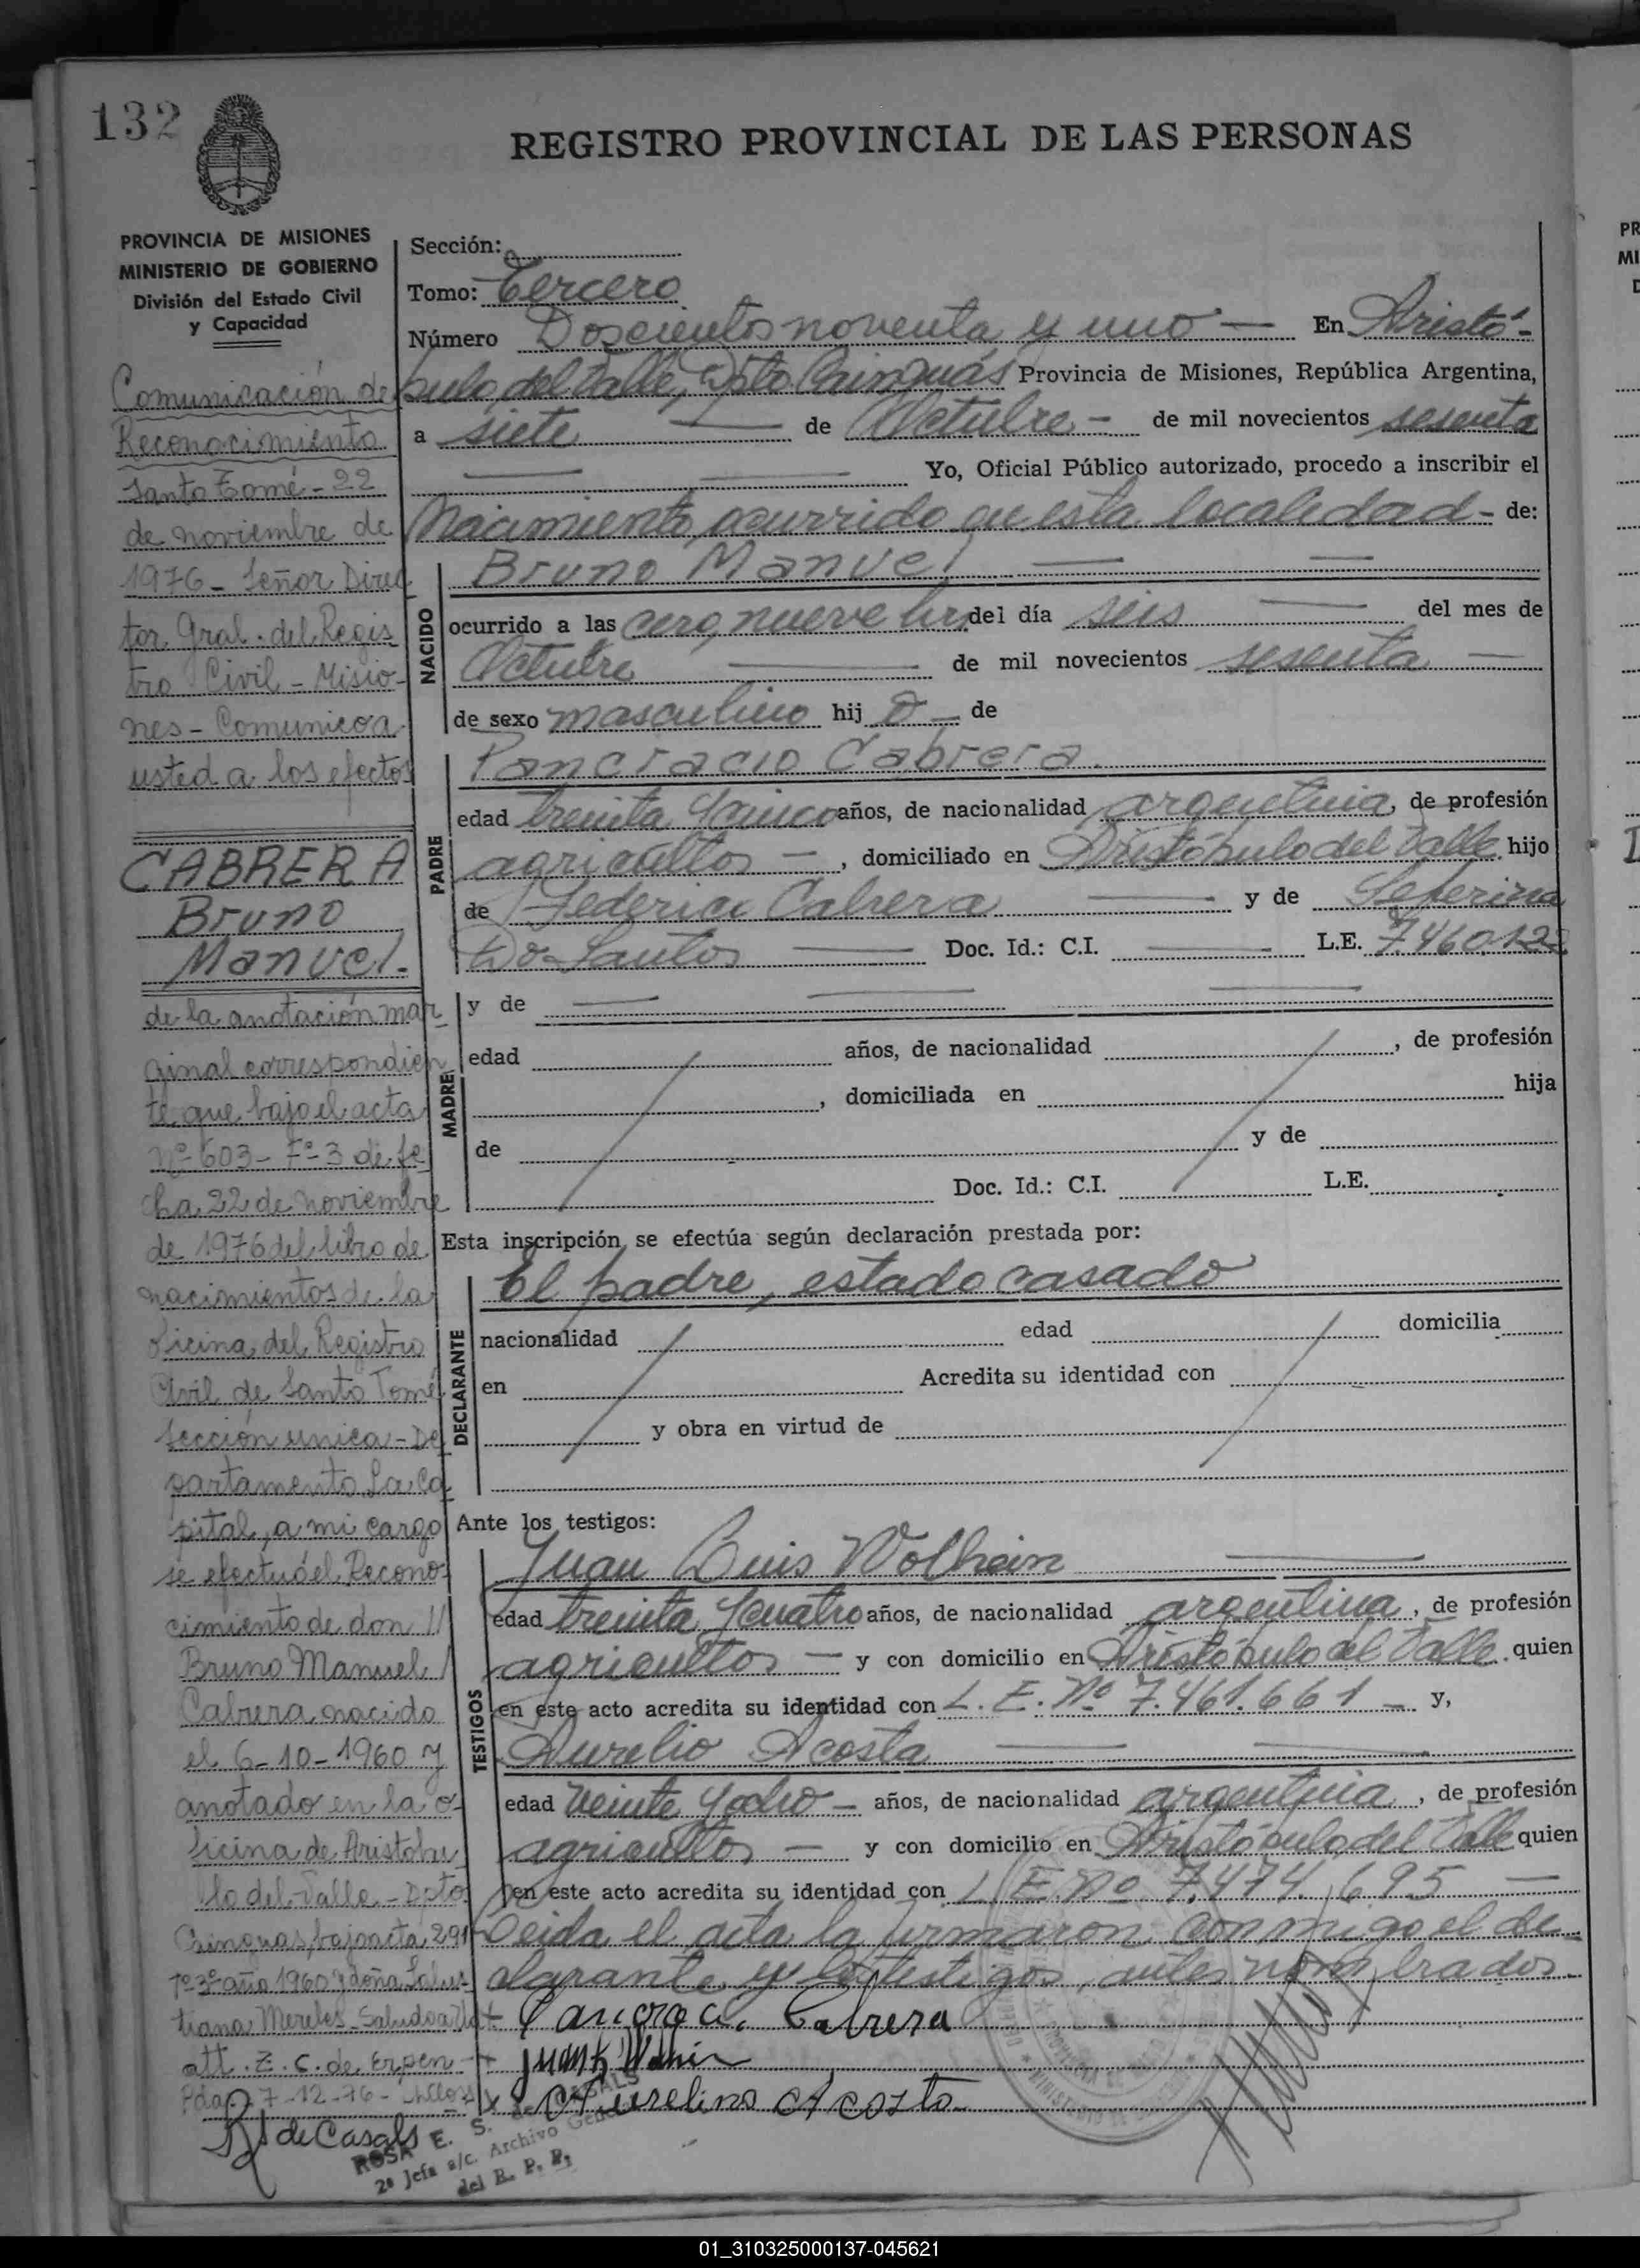 132
REGISTRO PROVINCIAL DE LAS PERSONAS
PROVINCIA DE MISIONES
MINISTERIO DE GOBIERNO
División del Estado Civil
y Capacidad
Comunicación de
Reconocimiento
Santo Tomé - 22
de noviembre de
1976 - Señor Direc
tor Gral. del Regis
tro Civil - Misio-
nes - Comunico a
usted a los efectos
CABRERA
Bruno
Manuel.
de la anotación mar
ginal correspondien
te que bajo el acta
Nº 603 - Tº 3 de fe
cha 22 de noviembre
de 1976 del libro de
nacimientos de la
oficina del Registro
Civil de Santo Tomé
sección unica - De
partamento La Ca
pital, a mi cargo
se efectuó el Recono-
cimiento de don //
Bruno Manuel /
Cabrera nacido
el 6-10-1960 y
anotado en la o-
ficina de Aristobu
lo del Valle - Dpto
Cainguas, bajo acta 291
Tº 3º año 1960 y doña Salus-
tiana Mereles - Saluda a Ud
att. Z. C. de Erpen
Pda. 7-12-76 -
R d de Casals
ROSA E. S. de CASALS
2º Jefa a/c. Archivo General
del R. P. P.
Sección:
Tomo: Tercero
Número Doscientos noventa y uno — En Aristó-
bulo del Valle, Dpto Cainguás Provincia de Misiones, República Argentina,
a siete — de Octubre - de mil novecientos sesenta
— — Yo, Oficial Público autorizado, procedo a inscribir el
Nacimiento, ocurrido en esta localidad - de:
NACIDO
Bruno Manuel — —
ocurrido a las cero, nueve hrs, del día seis — del mes de
Octubre — de mil novecientos sesenta —
de sexo masculino hij o — de
PADRE
Pancracio Cabrera
edad treinta y cinco años, de nacionalidad argentina, de profesión
agricultor —, domiciliado en Aristóbulo del Valle hijo
de Federico Cabrera — y de Seferina
Do Santos — Doc. Id.: C.I. — L.E. 7.460.122
MADRE
y de — — —
edad años, de nacionalidad , de profesión
, domiciliada en hija
de y de
Doc. Id.: C.I. L.E.
Esta inscripción se efectúa según declaración prestada por:
DECLARANTE
El padre, estado casado
nacionalidad edad domicilia
en Acredita su identidad con
y obra en virtud de
Ante los testigos:
TESTIGOS
Juan Luis Wolhein —
edad treinta y cuatro años, de nacionalidad argentina, de profesión
agricultor — y con domicilio en Aristóbulo del Valle quien
en este acto acredita su identidad con L. E. Nº 7.461.661 — y,
Aurelio Acosta — —
edad veinte y ocho — años, de nacionalidad argentina, de profesión
agricultor — y con domicilio en Aristóbulo del Valle quien
en este acto acredita su identidad con L. E. Nº 7.474.695 —
Leida el acta la firmaron conmigo el de-
clarante y los testigos, antes nombrados.
Pancracio Cabrera
Aurelino Acosta
01_310325000137-045621